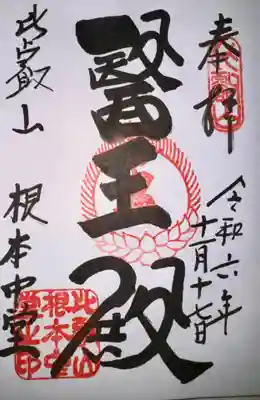 奉拝
令和六年
十一月十七日
醫王殿
比叡山
根本中堂
比叡山
根本中堂